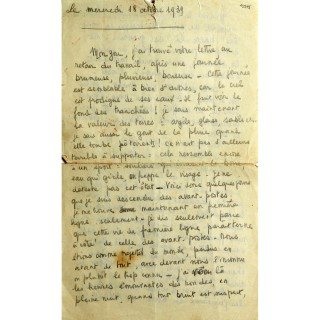 Le mercredi 18 octobre 1939
Mon gou, j'ai trouvé votre lettre au
retour du travail, après une journée
brumeuse, pluvieuse, boueuse - Cette journée
est semblable à bien d'autres, car le ciel
est prodigue de ses eaux. Il fait voir le
fond des tranchées ! je sais maintenant
la valeur des terres : argile, glaise, sable etc.
je sais aussi le goût de la pluie quand
elle tombe
ce n'est pas d'ailleurs
terrible à supporter : cela ressemble
un sport
eau qui gicle, en frappe le visage. Je ne
déteste pas cet état - Voici donc quelques jours
que je suis descendu des avant-postes.
je ne suis maintenant en première
ligne seulement - je dis seulement parce
que cette vie de première ligne paraît terne
à côté de celle des avant-postes - Nous
étions comme rejetés du monde, perdus en
avant de tout avec devant nous l'inconnu
ou plutôt le trop connu - j'ai
les heures émouvantes des rondes, en
pleine nuit, quand tout bruit est suspect,